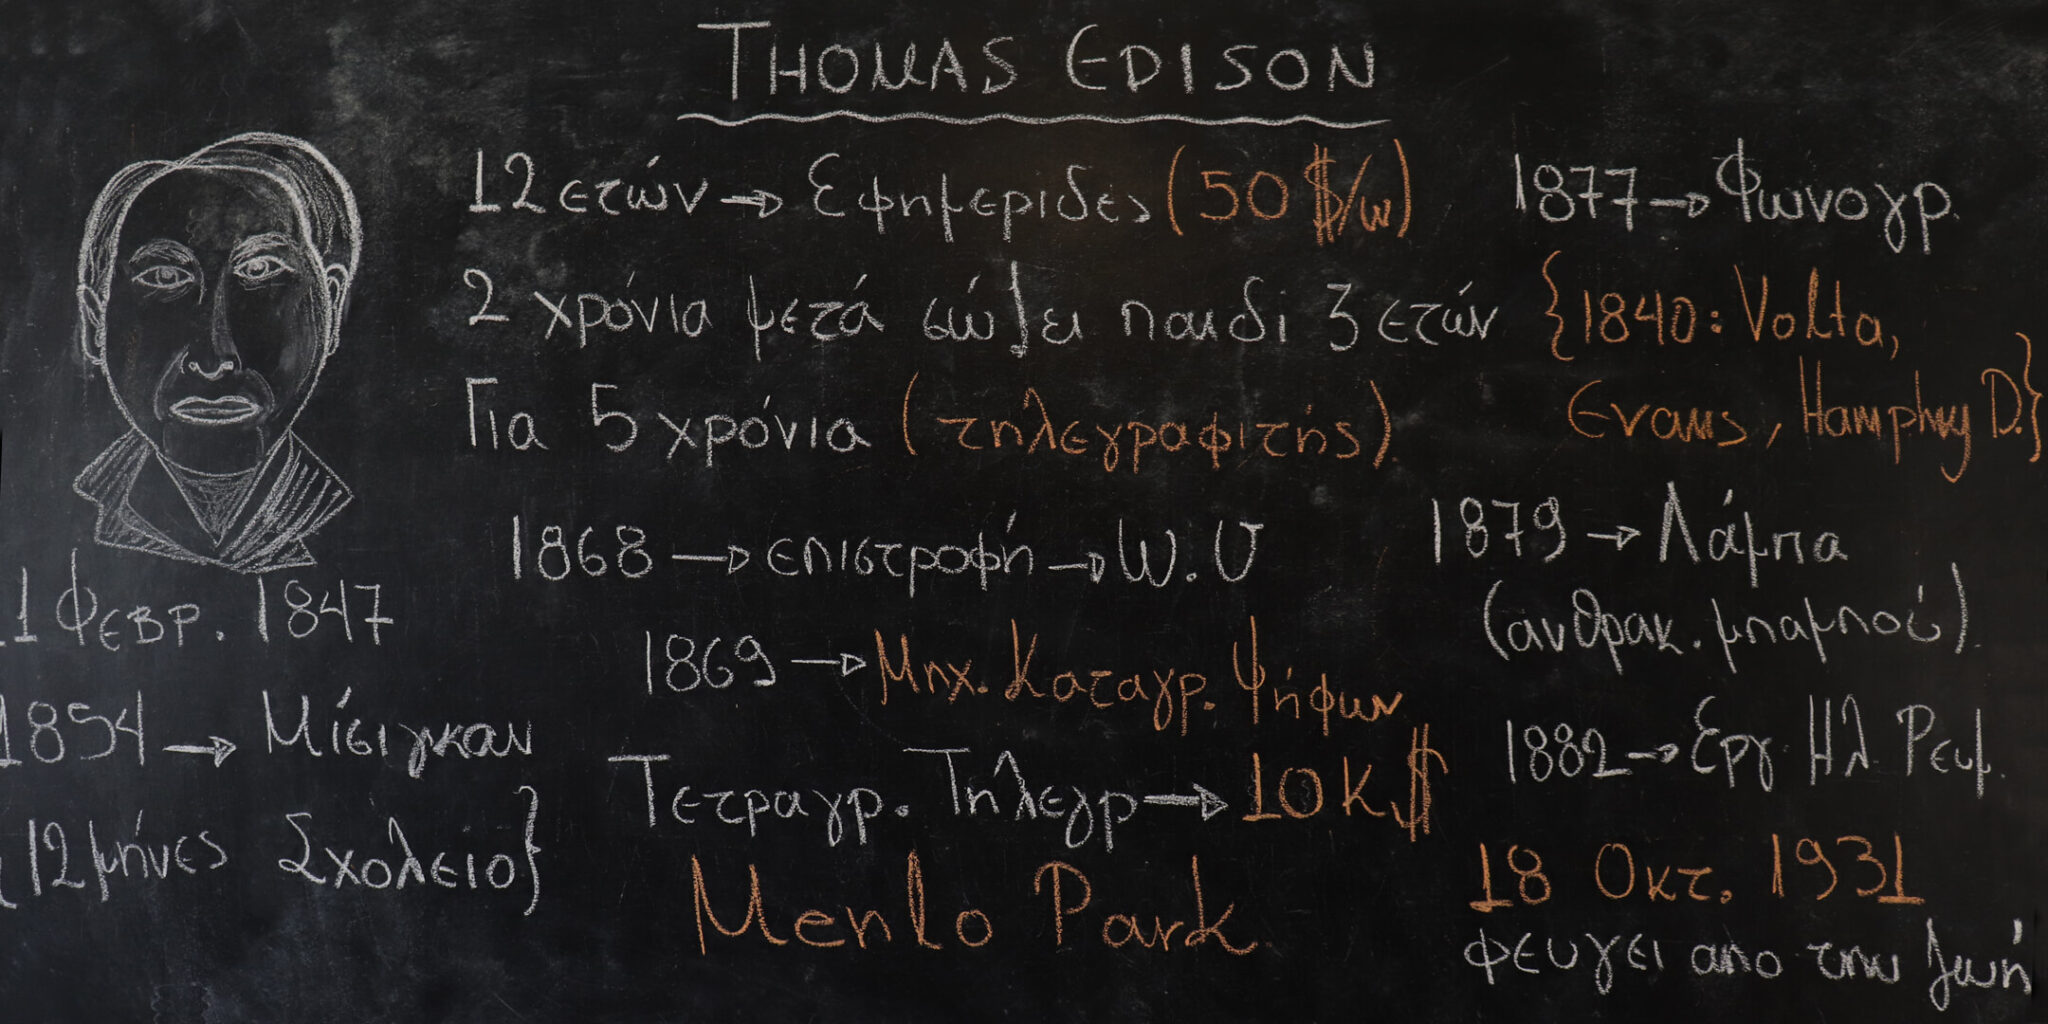 THOMAS EDISON
11 Φεβρ. 1847
1854 → Μίσιγκαν
{12 μήνες Σχολείο}
12 ετών → Εφημερίδες (50 $/w)
2 χρόνια μετά σώζει παιδί 3 ετών
Για 5 χρόνια (τηλεγραφιτής)
1868 → επιστροφή → W.U
1869 → Μηχ. Καταγρ. Ψήφων
Τετραγρ. Τηλεγρ → 10 K $
Menlo Park
1877 → Φωνογρ.
{1840: Volta,
Evans, Hamphry D.}
1879 → Λάμπα
(ανθρακ. μπαμπού).
1882 → Εργ. Ηλ. Ρευμ.
18 Οκτ. 1931
φευγει απο την ζωή